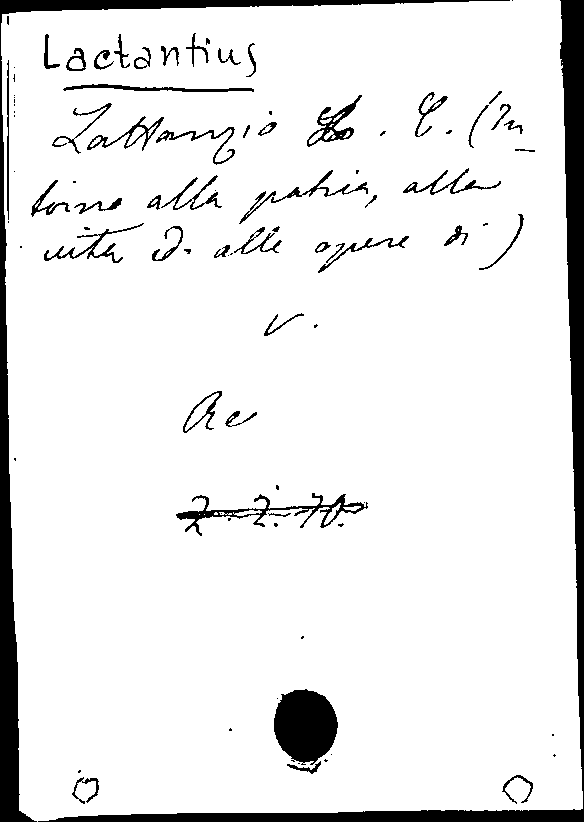 Lactantius
Lattanzio L. C. (In-
torno alla patria, alla
vita e alle opere di)
v.
Re
2. 2. 70.